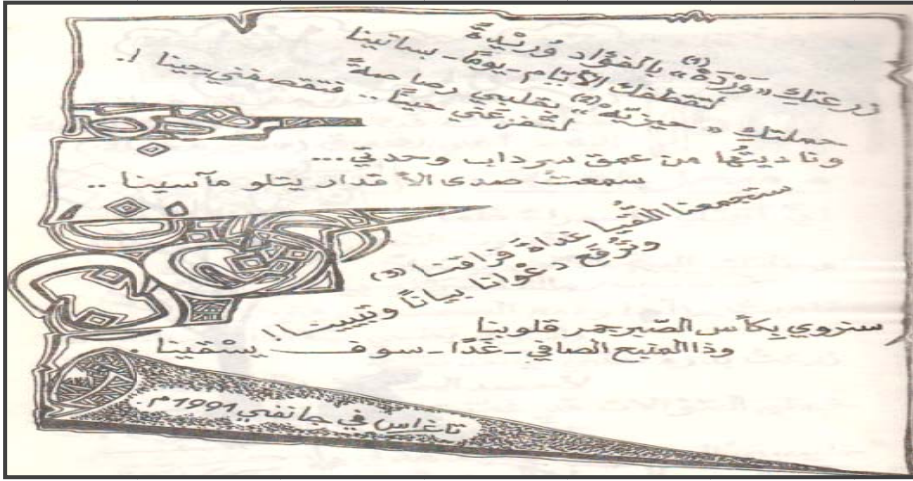 زرعتكِ «وَرْدَةً» (1) بالفؤاد وُرَيْدةً
لتقطفك الأيّام - يومًا - بساتينا
حملتكِ «حيزيّة» (2) بقلبي رصاصةً
لتفرغني حينًا .. فتقصفني حينا !.
وناديتُها من عمق سرداب وحدتي...
سمعتُ صدى الأقدار يتلو مآسينا ..
ستجمعنا اللُّقْيا غداةَ فراقنا (3)
وتُرْفَع دعْوانا بيانًا وتبيينا !
سنروي بكأس الصّبر جمر قلوبنا
وذا المنبع الصافي - غَدًا - سوف يسْقينا .
تاغراس في جانفي 1991م.